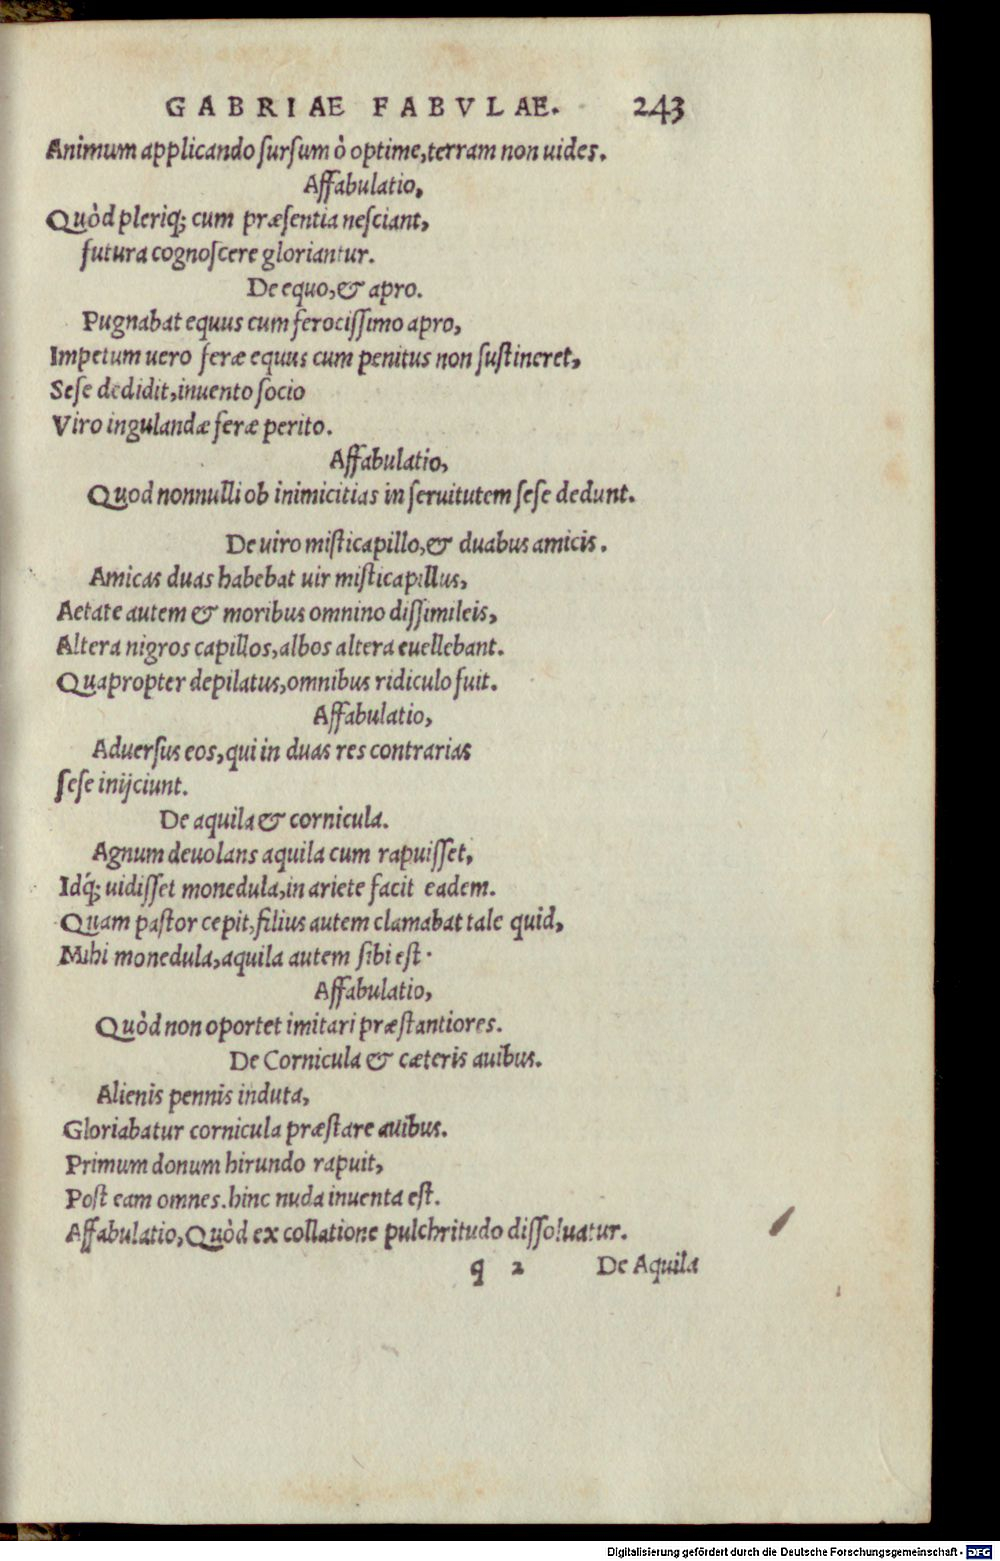 GABRIAE FABVLAE. 243
Animum applicando ſurſum ò optime, terram non uides.
Affabulatio,
Quòd pleriq; cum præſentia neſciant,
futura cognoſcere gloriantur.
De equo, & apro.
Pugnabat equus cum ferociſſimo apro,
Impetum uero feræ equus cum penitus non ſuſtineret,
Seſe dedidit, inuento ſocio
Viro ingulandæ feræ perito.
Affabulatio,
Quod nonnulli ob inimicitias in ſeruitutem ſeſe dedunt.
De uiro miſticapillo, & duabus amicis.
Amicas duas habebat uir miſticapillus,
Aetate autem & moribus omnino diſſimileis,
Altera nigros capillos, albos altera euellebant.
Quapropter depilatus, omnibus ridiculo fuit.
Affabulatio,
Aduerſus eos, qui in duas res contrarias
ſeſe inijciunt.
De aquila & cornicula.
Agnum deuolans aquila cum rapuiſſet,
Idq́; uidiſſet monedula, in ariete facit eadem.
Quam paſtor cepit, filius autem clamabat tale quid,
Mihi monedula, aquila autem ſibi eſt.
Affabulatio,
Quòd non oportet imitari præſtantiores.
De Cornicula & cæteris auibus.
Alienis pennis induta,
Gloriabatur cornicula præſtare auibus.
Primum donum hirundo rapuit,
Poſt eam omnes. hinc nuda inuenta eſt.
Affabulatio, Quòd ex collatione pulchritudo diſſoluatur.
q 2 De Aquila
Digitalisierung gefördert durch die Deutsche Forschungsgemeinschaft - DFG